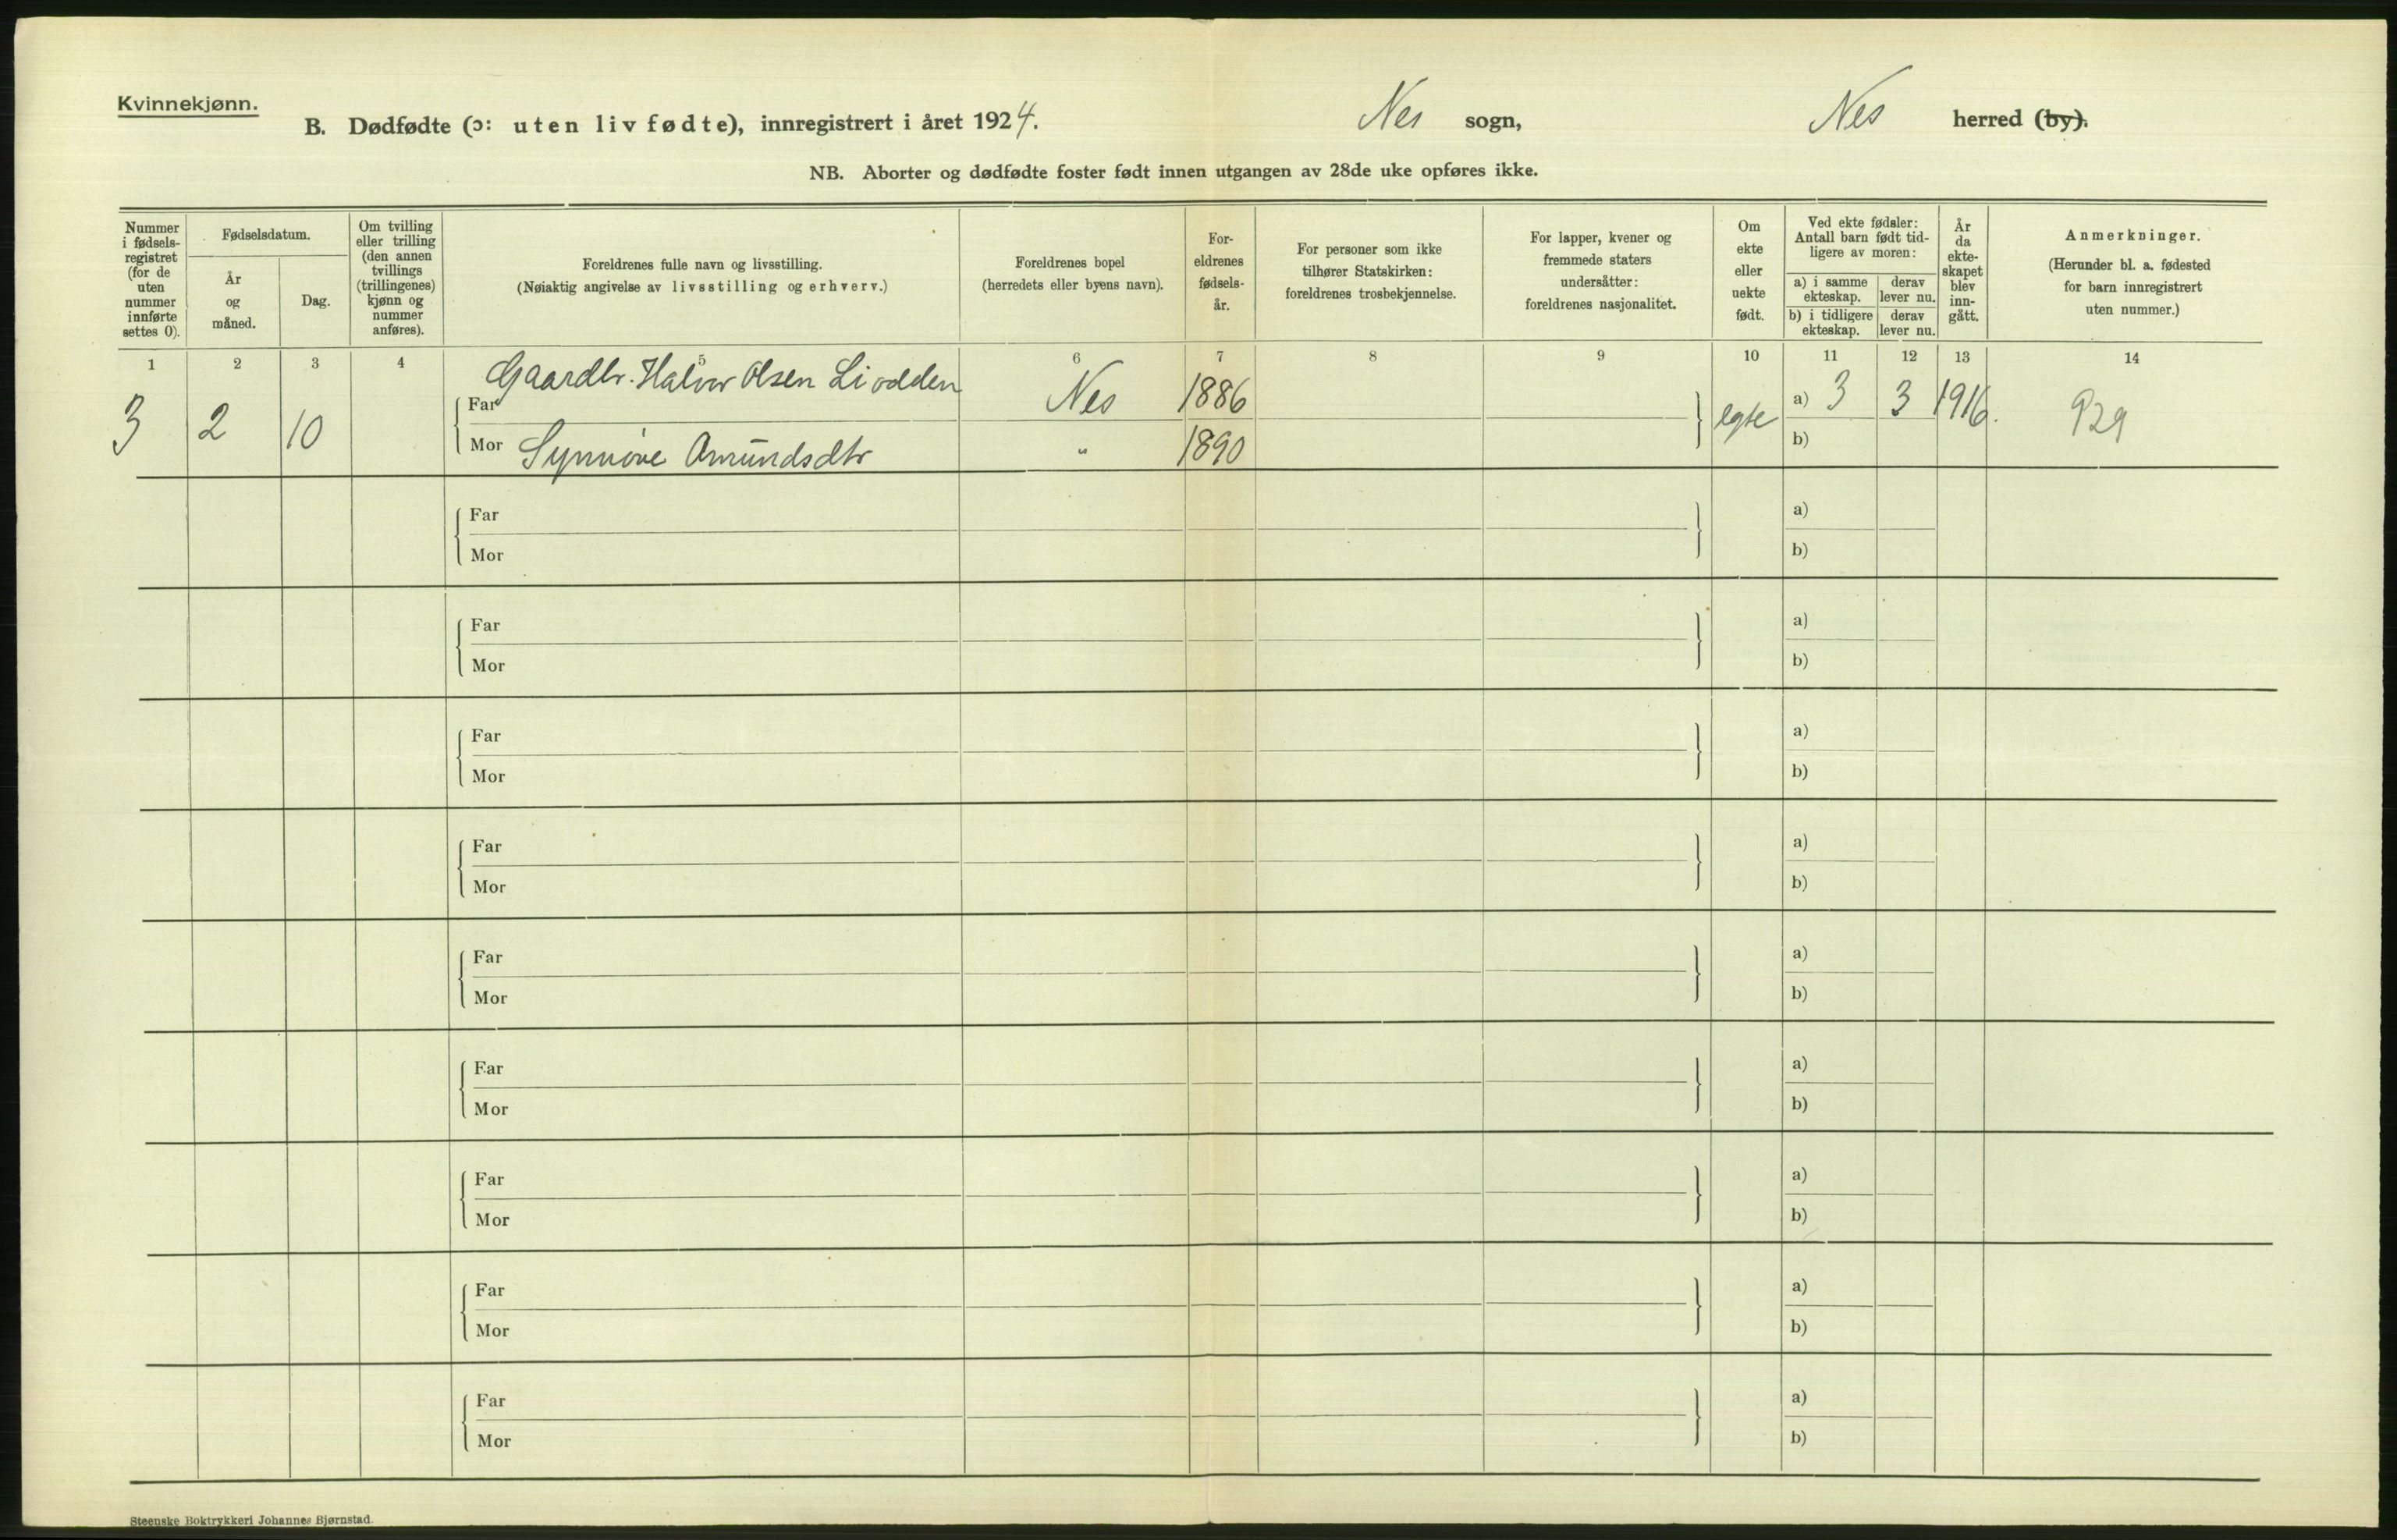 Kvinnekjønn.
B. Dødfødte (ɔ: uten liv fødte), innregistrert i året 1924. Nes sogn, Nes herred (by).
NB. Aborter og dødfødte foster født innen utgangen av 28de uke opføres ikke.
Nummer
i fødsels-
registret
(for de
uten
nummer
innførte
settes 0).
Fødselsdatum.
År
og
måned.
Dag.
Om tvilling
eller trilling
(den annen
tvillings
(trillingenes)
kjønn og
nummer
anføres).
Foreldrenes fulle navn og livsstilling.
(Nøiaktig angivelse av livsstilling og erhverv.)
Foreldrenes bopel
(herredets eller byens navn).
For-
eldrenes
fødsels-
år.
For personer som ikke
tilhører Statskirken:
foreldrenes trosbekjennelse.
For lapper, kvener og
fremmede staters
undersåtter:
foreldrenes nasjonalitet.
Om
ekte
eller
uekte
født.
Ved ekte fødsler:
Antall barn født tid-
ligere av moren:
a) i samme
ekteskap.
derav
lever nu.
b) i tidligere
ekteskap.
derav
lever nu.
År
da
ekte-
skapet
blev
inn-
gått.
Anmerkninger.
(Herunder bl. a. fødested
for barn innregistrert
uten nummer.)
1 2 3 4 5 6 7 8 9 10 11 12 13 14
3 2 10
Far Gaardbr. Halvor Olsen Liodden Nes 1886 egte a) 3 3 1916.
Mor Synnøve Amundsdtr " 1890 b)
Far a)
Mor b)
Far a)
Mor b)
Far a)
Mor b)
Far a)
Mor b)
Far a)
Mor b)
Far a)
Mor b)
Far a)
Mor b)
Far a)
Mor b)
Far a)
Mor b)
Steenske Boktrykkeri Johannes Bjørnstad.